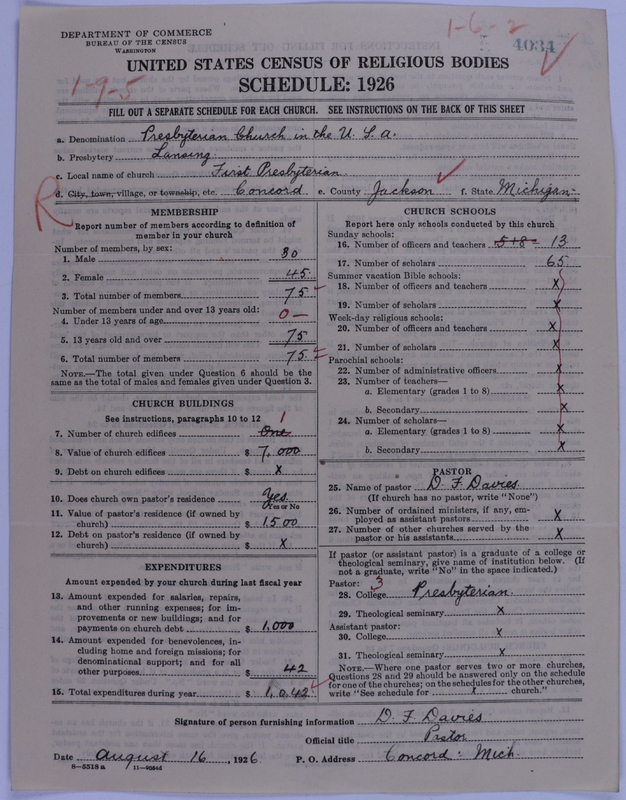 DEPARTMENT OF COMMERCE
BUREAU OF THE CENSUS
WASHINGTON
1-6-2
4034
UNITED STATES CENSUS OF RELIGIOUS BODIES
1-9-5
SCHEDULE: 1926
FILL OUT A SEPARATE SCHEDULE FOR EACH CHURCH. SEE INSTRUCTIONS ON THE BACK OF THIS SHEET
a. Denomination Presbyterian Church in the U. S. a.
b. Presbytery Lansing
c. Local name of church First Presbyterian
R
d. City, town, village, or township, etc. Concord e. County Jackson f. State Michigan
MEMBERSHIP
Report number of members according to definition of
member in your church
Number of members, by sex:
1. Male 30
2. Female 45
3. Total number of members 75
Number of members under and over 13 years old:
4. Under 13 years of age 0
5. 13 years old and over 75
6. Total number of members 75
NOTE.—The total given under Question 6 should be
same as the total of males and females given under Question 3.
CHURCH BUILDINGS
See instructions, paragraphs 10 to 12
7. Number of church edifices One 1
8. Value of church edifices $ 7,000
9. Debt on church edifices $ X
10. Does church own pastor's residence Yes
Yes or No
11. Value of pastor's residence (if owned by
church) $ 1500
12. Debt on pastor's residence (if owned by
church) $ X
EXPENDITURES
Amount expended by your church during last fiscal year
13. Amount expended for salaries, repairs,
and other running expenses; for im-
provements or new buildings; and for
payments on church debt $ 1,000
14. Amount expended for benevolences, in-
cluding home and foreign missions; for
denominational support; and for all
other purposes $ 42
15. Total expenditures during year $ 1,042
CHURCH SCHOOLS
Report here only schools conducted by this church
Sunday schools:
16. Number of officers and teachers 5+8= 13
17. Number of scholars 65
Summer vacation Bible schools:
18. Number of officers and teachers X
19. Number of scholars X
Week-day religious schools:
20. Number of officers and teachers X
21. Number of scholars X
Parochial schools:
22. Number of administrative officers X
23. Number of teachers—
a. Elementary (grades 1 to 8) X
b. Secondary X
24. Number of scholars—
a. Elementary (grades 1 to 8) X
b. Secondary X
PASTOR
25. Name of pastor D. F. Davies
(If church has no pastor, write "None")
26. Number of ordained ministers, if any, em-
ployed as assistant pastors X
27. Number of other churches served by the
pastor or his assistants X
If pastor (or assistant pastor) is a graduate of a college or
theological seminary, give name of institution below. (If
not a graduate, write "No" in the space indicated.)
Pastor: 3
28. College Presbyterian
29. Theological seminary X
Assistant pastor:
30. College X
31. Theological seminary X
NOTE.—Where one pastor serves two or more churches,
Questions 28 and 29 should be answered only on the schedule
for one of the churches; on the schedules for the other churches,
write "See schedule for X church."
Signature of person furnishing information D. F. Davies
Official title Pastor
Date August 16, 1926 P. O. Address Concord Mich.
8—5518 a